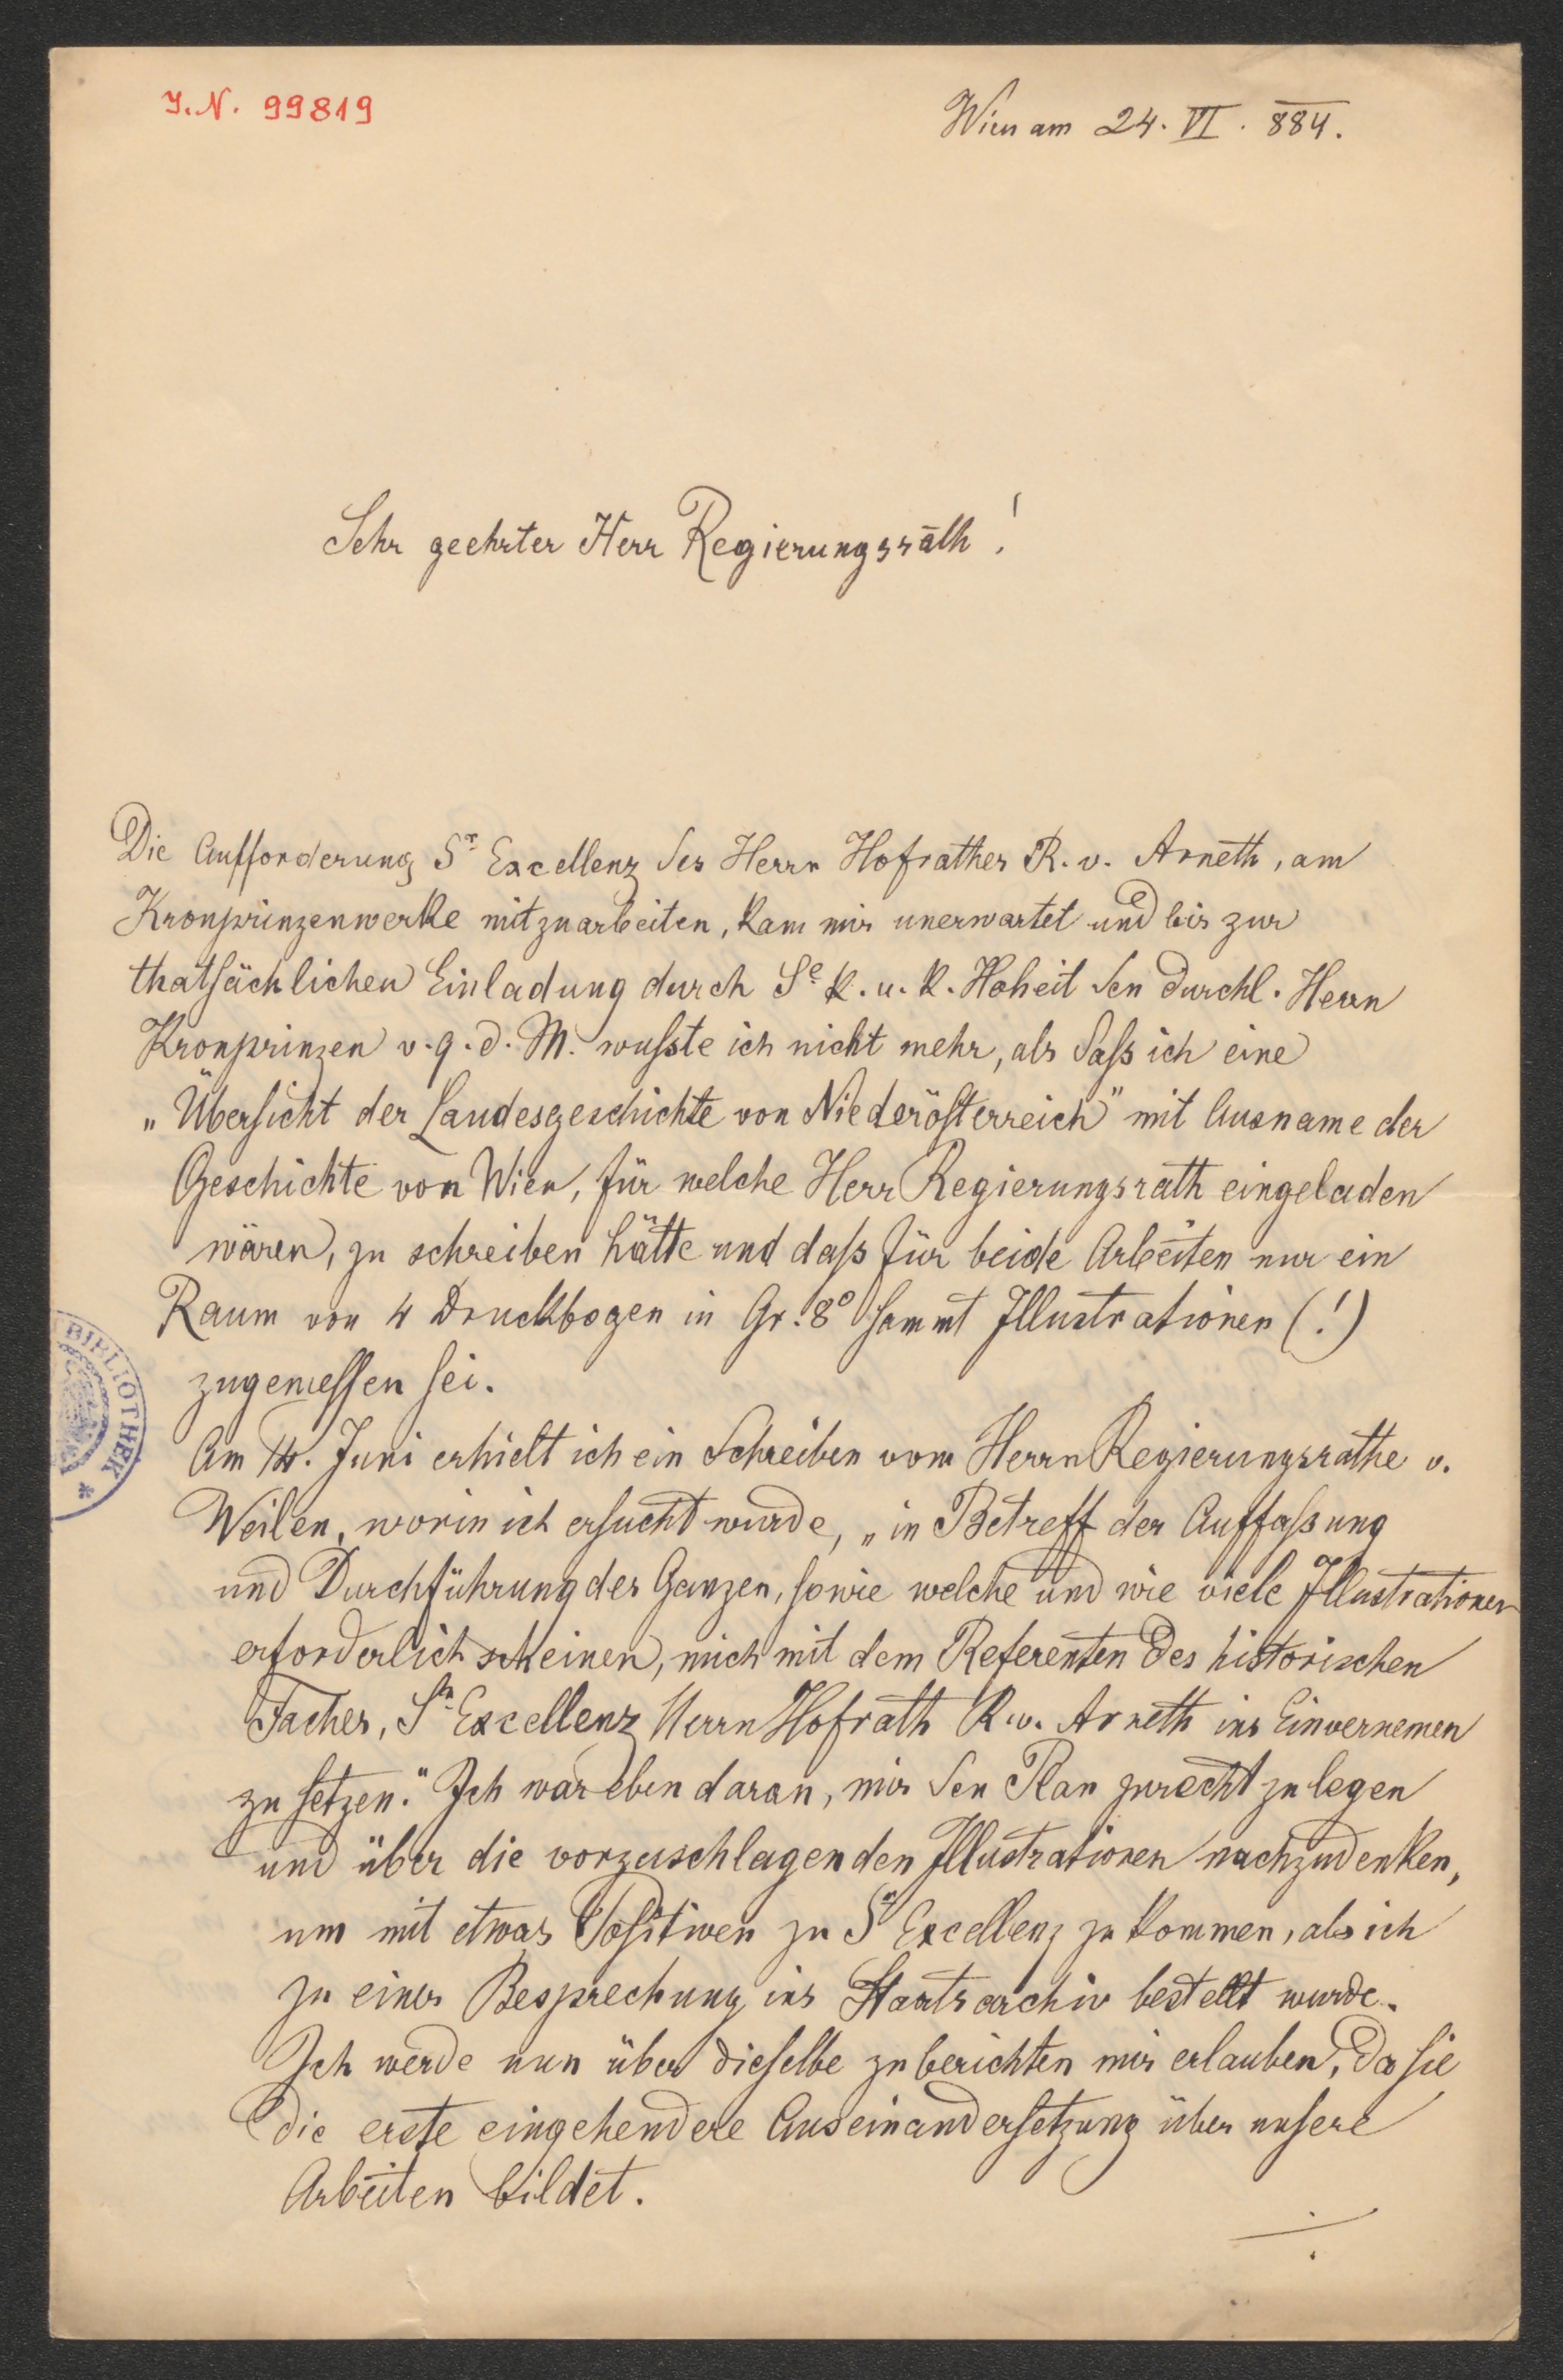 I.N. 99819
Wien am 24. VI. 884.
Sehr geehrter Herr Regierungsrath!
Die Aufforderung Sr Excellenz des Herrn Hofrathes R. v. Arneth, am
Kronprinzenwerke mitzuarbeiten, kam mir unerwartet und bis zur
thatsächlichen Einladung durch Se k. u. k. Hoheit den Durchl. Herrn
Kronprinzen v. 9. d. M. wusste ich nicht mehr, als dass ich eine
„Übersicht der Landesgeschichte von Niederösterreich" mit Ausname der
Geschichte von Wien, für welche Herr Regierungsrath eingeladen
wären, zu schreiben hätte und dass für beide Arbeiten nur ein
Raum von 4 Druckbogen in Gr. 8o sammt Illustrationen (!)
zugemessen sei.
Am 14. Juni erhielt ich ein Schreiben vom Herrn Regierungsrathe v.
Weilen, worin ich ersucht wurde, „in Betreff der Auffassung
und Durchführung des Ganzen, sowie welche und wie viele Illustrationen
erforderlich scheinen, mich mit dem Referenten des historischen
Faches, Sr Excellenz Herrn Hofrath R. v. Arneth ins Einvernemen
zu setzen." Ich war eben daran, mir den Plan zurecht zu legen
und über die vorzuschlagenden Illustrationen nachzudenken,
um mit etwas Positiven zu Sr Excellenz zu kommen, als ich
zu einer Besprechung ins Staatsarchiv bestellt wurde.
Ich werde nun über dieselbe zu berichten mir erlauben, da sie
die erste eingehendere Auseinandersetzung über unsere
Arbeiten bildet.
./.
BIBLIOTHEK *